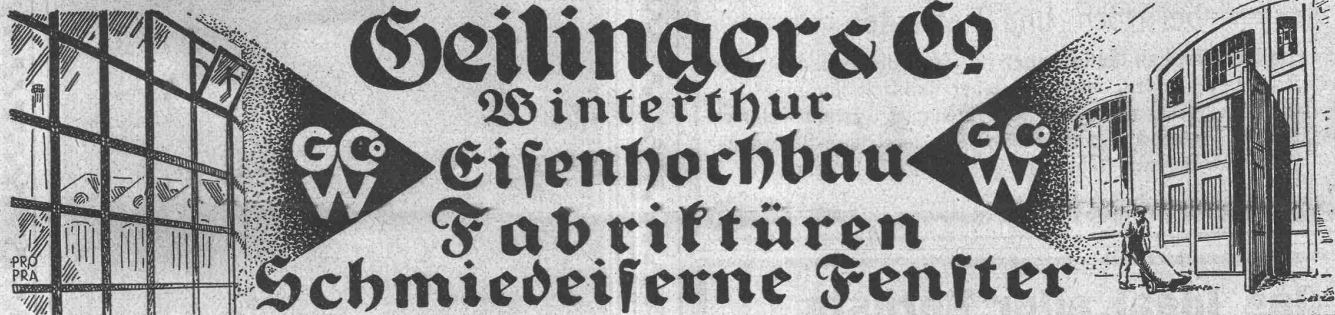 Geilinger & Co
Winterthur
Eisenhochbau
Fabriktüren
Schmiedeiserne Fenster
GCo
W
GCo
W
PRO
PRA